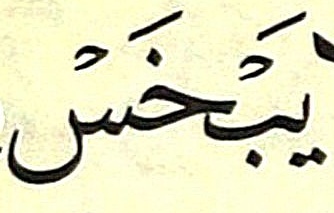 يَبْخَسْ